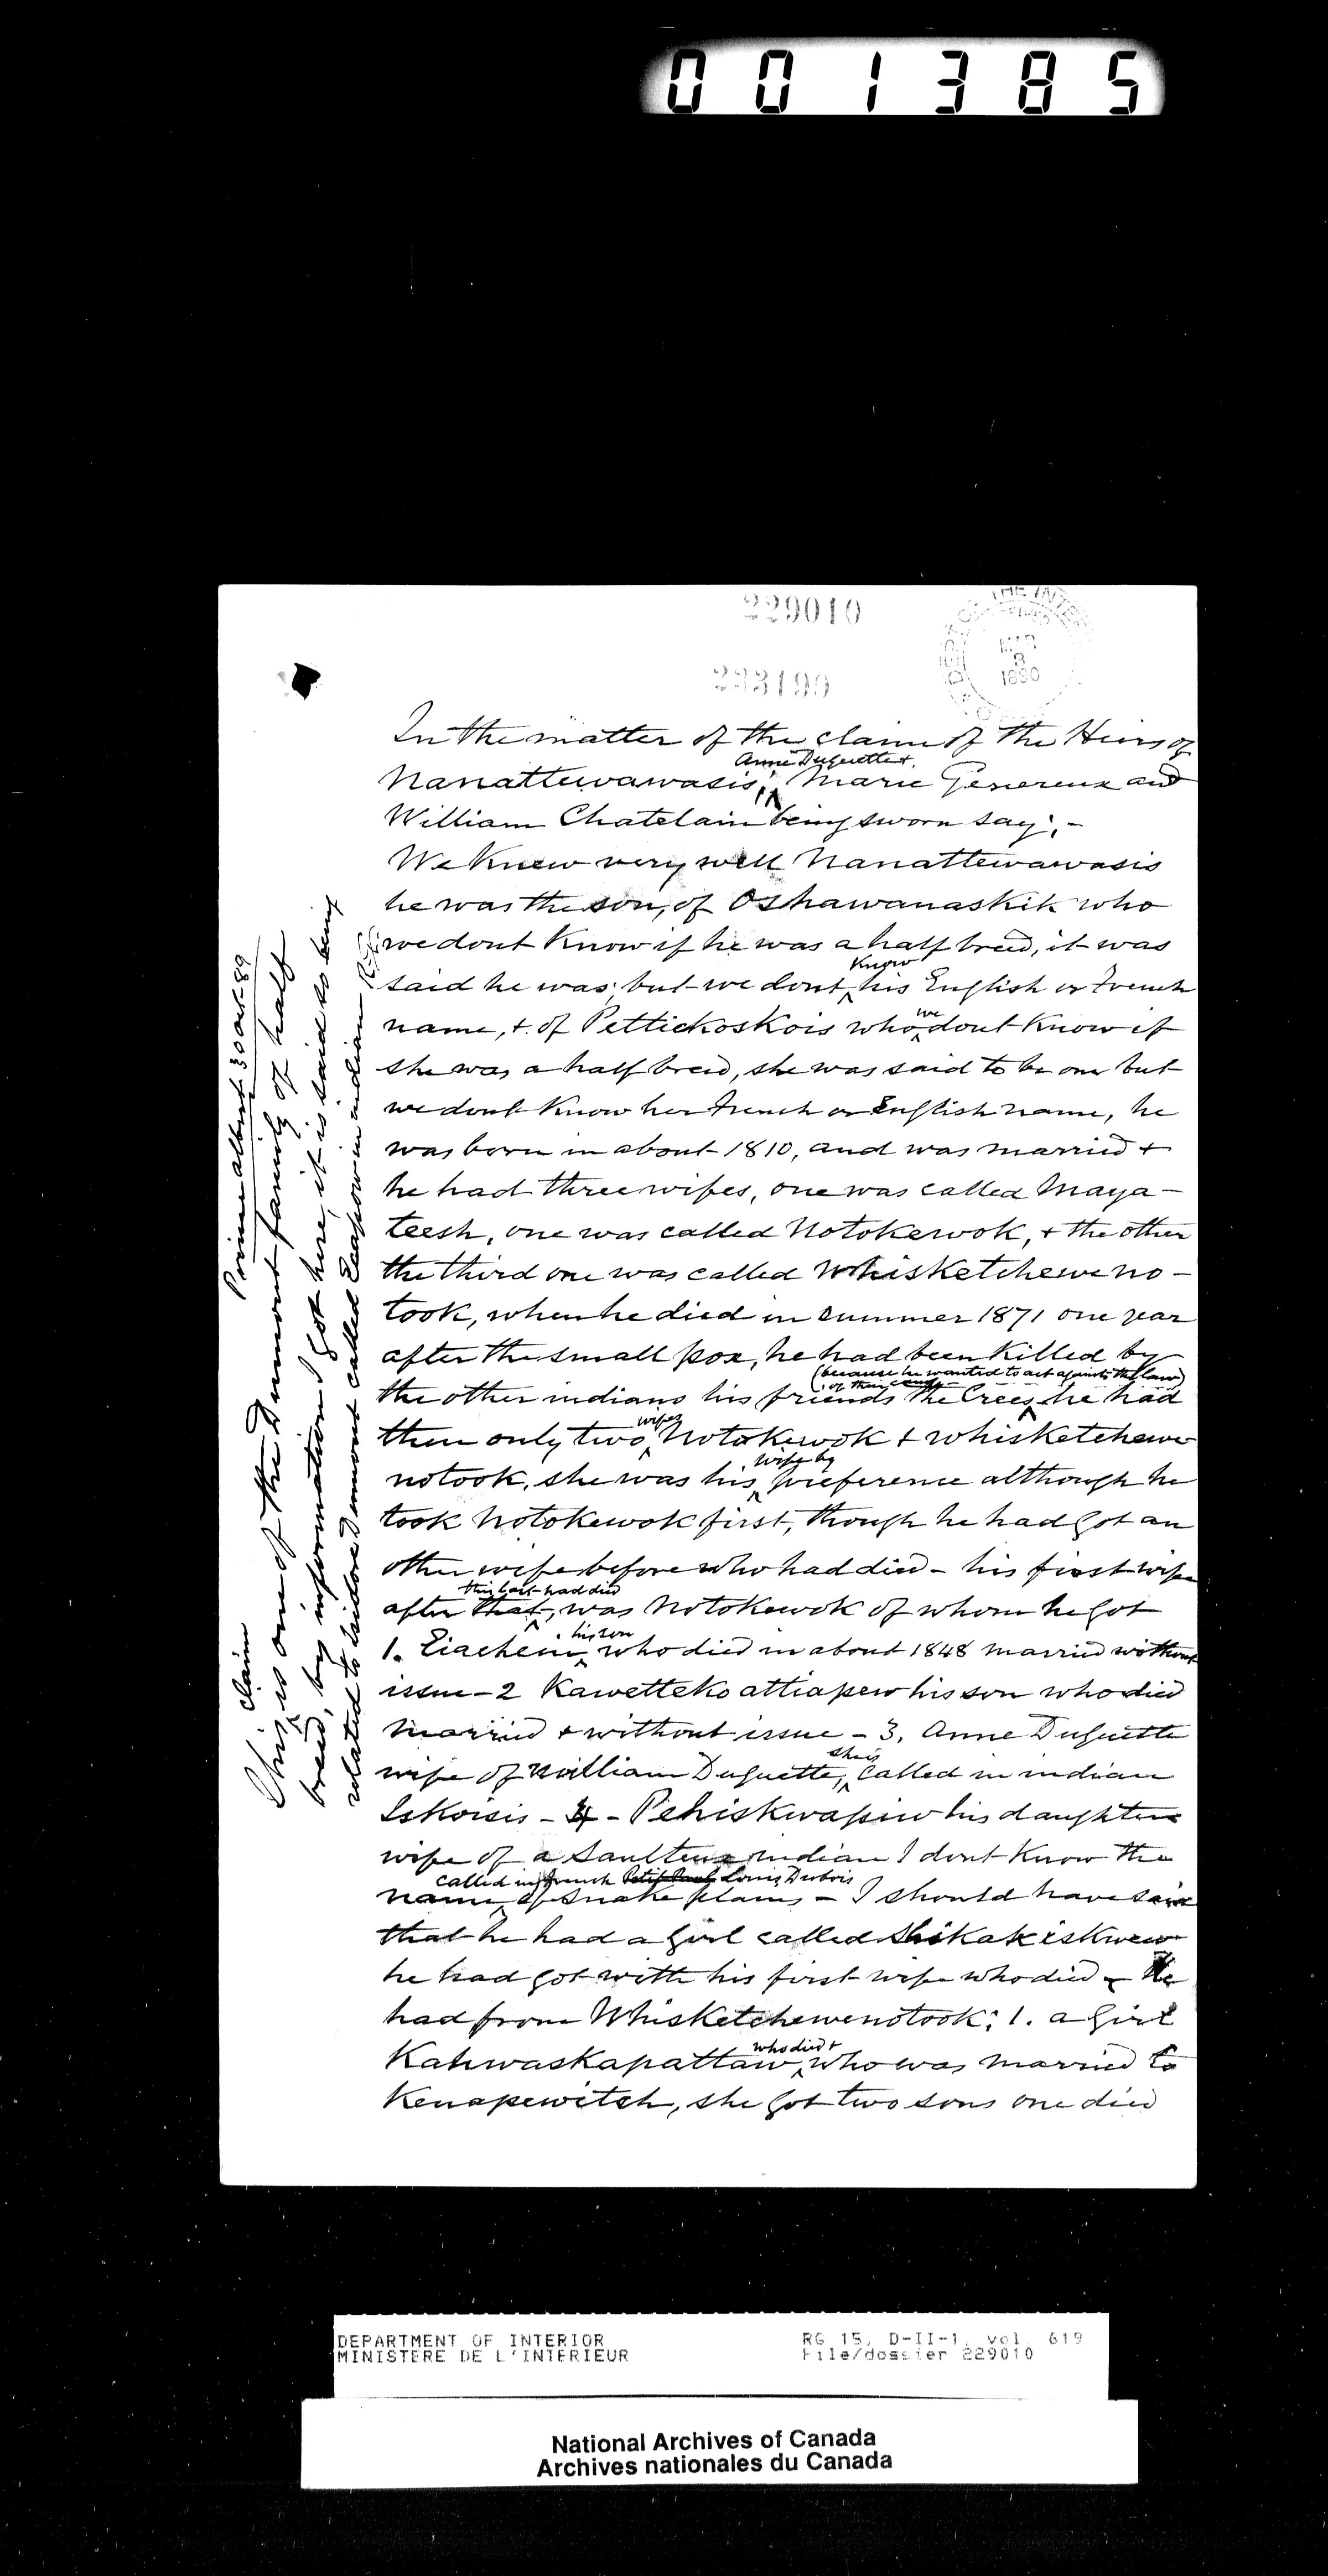 001385
229010
233199
MAR
3
1890
In the matter of the claim of the Heirs of
Anne Duquette +
Nanattewawasis, Marie Genereux and
William Chatelain being sworn say; -
We knew very well Nanattewawasis
he was the son, of Oshawanaskik who
we dont know if he was a half breed, it was
know
said he was, but we dont his English or French
we
name, + of Pettickoskois who dont know if
she was a half breed, she was said to be one but
we dont know her French or English name, he
was born in about 1810, and was married +
he had three wifes, one was called Maya-
teesh, one was called Notokewok, + the other
the third one was called Whisketcheweno-
took, when he died in summer 1871 one year
after the small pox, he had been killed by
(because he wanted to act against the law)
of their camp
the other indians his friends the Crees he had
wifes
then only two Notokewok + whisketchewe
wife by
notook, she was his preference although he
took Notokewok first, though he had got an
other wife before who had died - his first wife
this last had died
after that, was Notokewok of whom he got
his son
1. Eiachein, who died in about 1848 married without
issue - 2 Kawetteko attiapew his son who died
married + without issue - 3, Anne Duquette
she is
wife of William Duquette, called in indian
Iskoisis - 4 - Pehiskwapiw his daughter
wife of a Saulteux indian I dont know the
called in french Louis Dubois
name, of Snake plains - I should have said
that he had a girl called Shikakiskwew
he had got with his first wife who died - He
had from Whisketchewenotook: 1. a girl
who died +
Kahwaskapattaw, who was married to
Kenapewitch, she got two sons one died
Prince Albert 30 oct. 89
This claim is one of the Dumont family of half
breed, by information I got here, it is said to being
related to Isidore Dumont called Ecapow in indian
DEPARTMENT OF INTERIOR
MINISTERE DE L'INTERIEUR
RG 15, D-II-1, vol. 619
File/dossier 229010
National Archives of Canada
Archives nationales du Canada